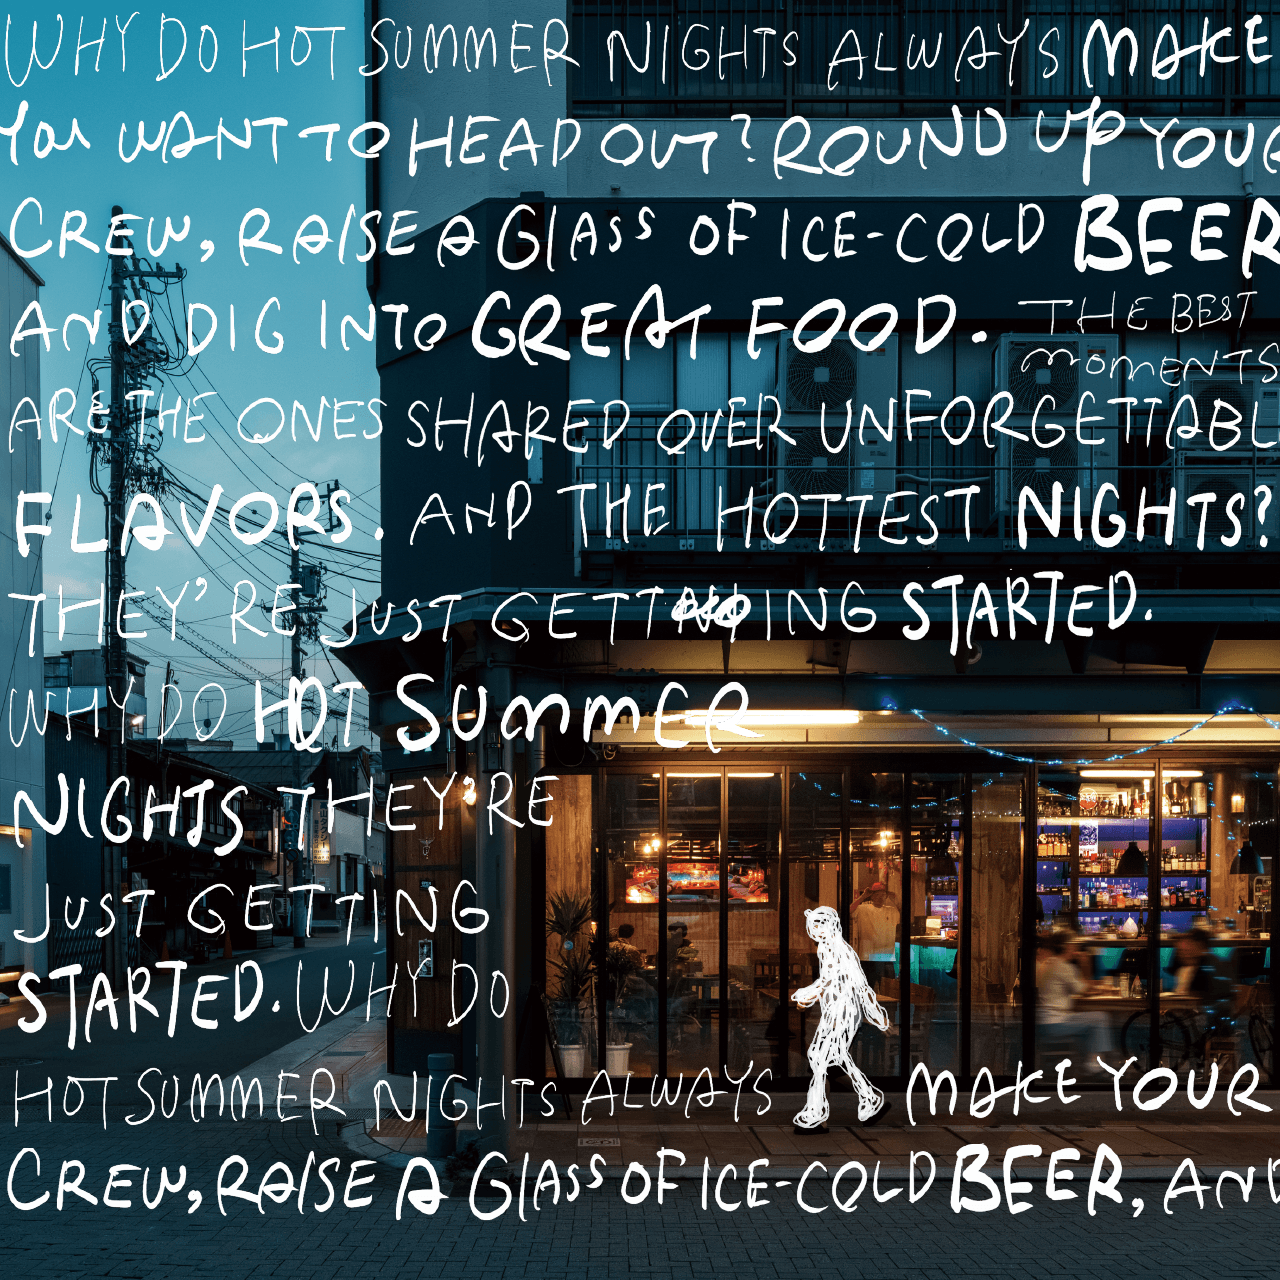 WHY DO HOT SUMMER NIGHTS ALWAYS MAKE
YOU WANT TO HEAD OUT? ROUND UP YOUR
CREW, RAISE A GLASS OF ICE-COLD BEER
AND DIG INTO GREAT FOOD. THE BEST
MOMENTS
ARE THE ONES SHARED OVER UNFORGETTABL
FLAVORS. AND THE HOTTEST NIGHTS?
THEY'RE JUST GETTING STARTED.
WHY DO HOT SUMMER
NIGHTS THEY'RE
JUST GETTING
STARTED. WHY DO
HOT SUMMER NIGHTS ALWAYS MAKE YOUR
CREW, RAISE A GLASS OF ICE-COLD BEER, AND